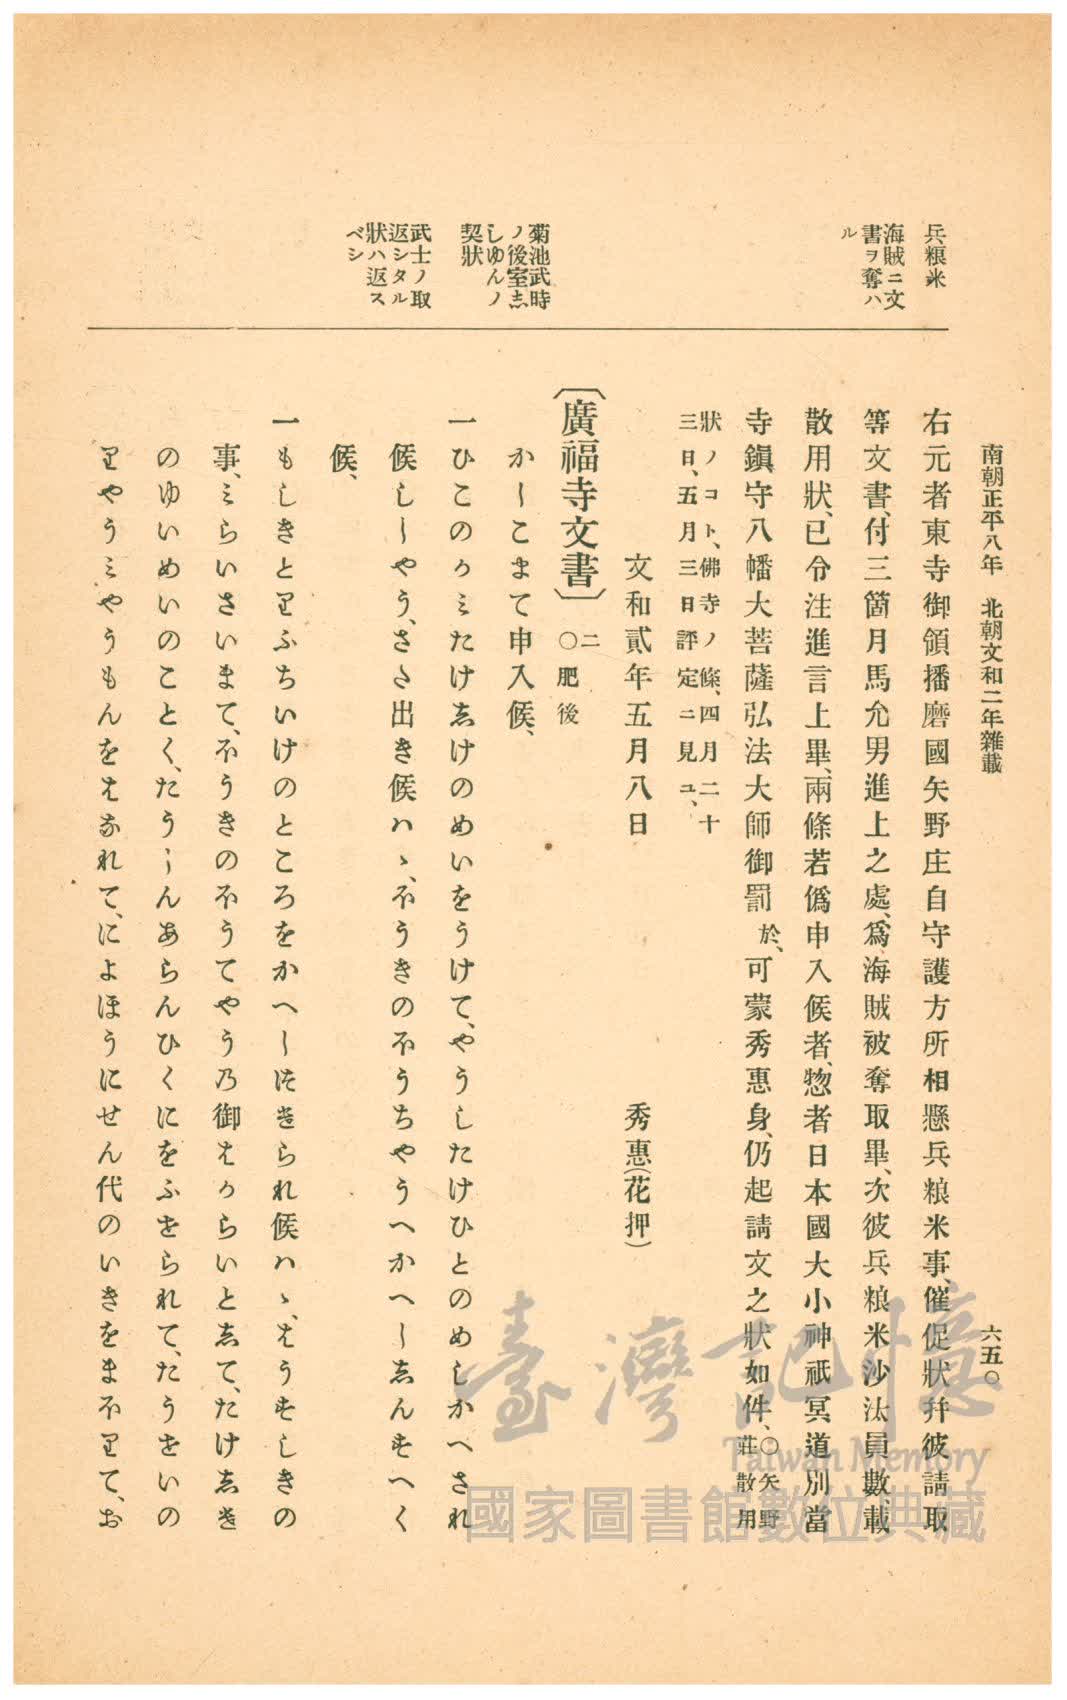 南朝正平八年 北朝文和二年雜載
六五〇
兵粮米
海賊ニ文
書ヲ奪ハ
ル
菊池武時
ノ後室志
しゆんノ
契狀
武士ノ取
返シタル
狀ハ返ス
ベシ
右元者東寺御領播磨國矢野庄自守護方所相懸兵粮米事、催促狀幷彼請取
等文書、付三箇月馬允男進上之處、爲海賊被奪取畢、次彼兵粮米沙汰員數、載
散用狀、已令注進言上畢、兩條若僞申入候者、惣者日本國大小神祇冥道別當
寺鎭守八幡大菩薩弘法大師御罰於、可蒙秀惠身、仍起請文之狀如件、〇矢野
莊散用
狀ノコト、佛寺ノ條、四月二十
三日、五月三日評定ニ見ユ、
文和貳年五月八日
秀惠(花押)
〔廣福寺文書〕〇肥後
二
かしこまて申入候、
一ひこのかミたけ志けのめいをうけて、やうしたけひとのめしかへされ
候しゝやう、さた出き候ハゝ、ふうきのふうちやうへかへし志んすへく
候、
一もしきとりふちいけのところをかへしつきられ候ハゝ、そうそしきの
事、ミらいさいまて、ふうきのふうてやう乃御はからいと志て、たけ志き
のゆいめいのことく、たうしんあらんひくにをふせられて、たうせいの
りやうミやうもんをはなれて、によほうにせん代のいきをまふりて、お